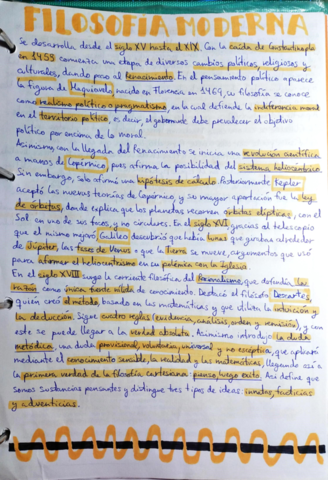 FILOSOFÍA MODERNA
Se desarrolla desde el siglo XV hasta el XIX. Con la caída de Constantinopla
en 1453 comienza una etapa de diversos cambios políticos, religiosos y
culturales, dando paso al Renacimiento. En el pensamiento político aparece
la figura de Maquiavelo nacido en Florencia en 1469, su filosofía se conoce
como realismo político o pragmatismo, en la cual defiende la indiferencia moral
en el territorio político, es decir, el gobernante debe prevalecer el objetivo
político por encima de la moral.
Asimismo, con la llegada del Renacimiento se inicia una revolución científica
a manos de Copérnico, pues afirma la posibilidad del sistema heliocéntrico.
Sin embargo, solo afirmó una hipótesis de cálculo. Posteriormente Kepler
aceptó las nuevas teorías de Copérnico y su mayor aportación fue la ley
de órbitas, donde explica que los planetas recorren órbitas elípticas, con el
Sol en uno de sus focos, y no circulares. En el siglo XVI gracias al telescopio
que el mismo mejoró, Galileo descubrió que había lunas que giraban alrededor
de Júpiter, las fases de Venus o que la tierra se mueve, argumentos que usó
para afirmar el heliocentrismo en una polémica con la Iglesia.
En el siglo XVIII surge la corriente filosófica del Racionalismo, que defendía la
razón como única fuente válida de conocimiento. Destaca el filósofo Descartes,
quien creó el método basado en las matemáticas y que utiliza la intuición y
la deducción. Sigue cuatro reglas (evidencia, análisis, orden y revisión), y con
este se puede llegar a la verdad absoluta. Asimismo introdujo la duda
metódica, una duda provisional, voluntaria, universal y no escéptica, que aplicará
mediante el conocimiento sensible, la realidad y las matemáticas, llegando así a
la primera verdad de la filosofía cartesiana: pienso, luego existo. Así define que
somos sustancias pensantes y distingue tres tipos de ideas: innatas, facticias
y adventicias.